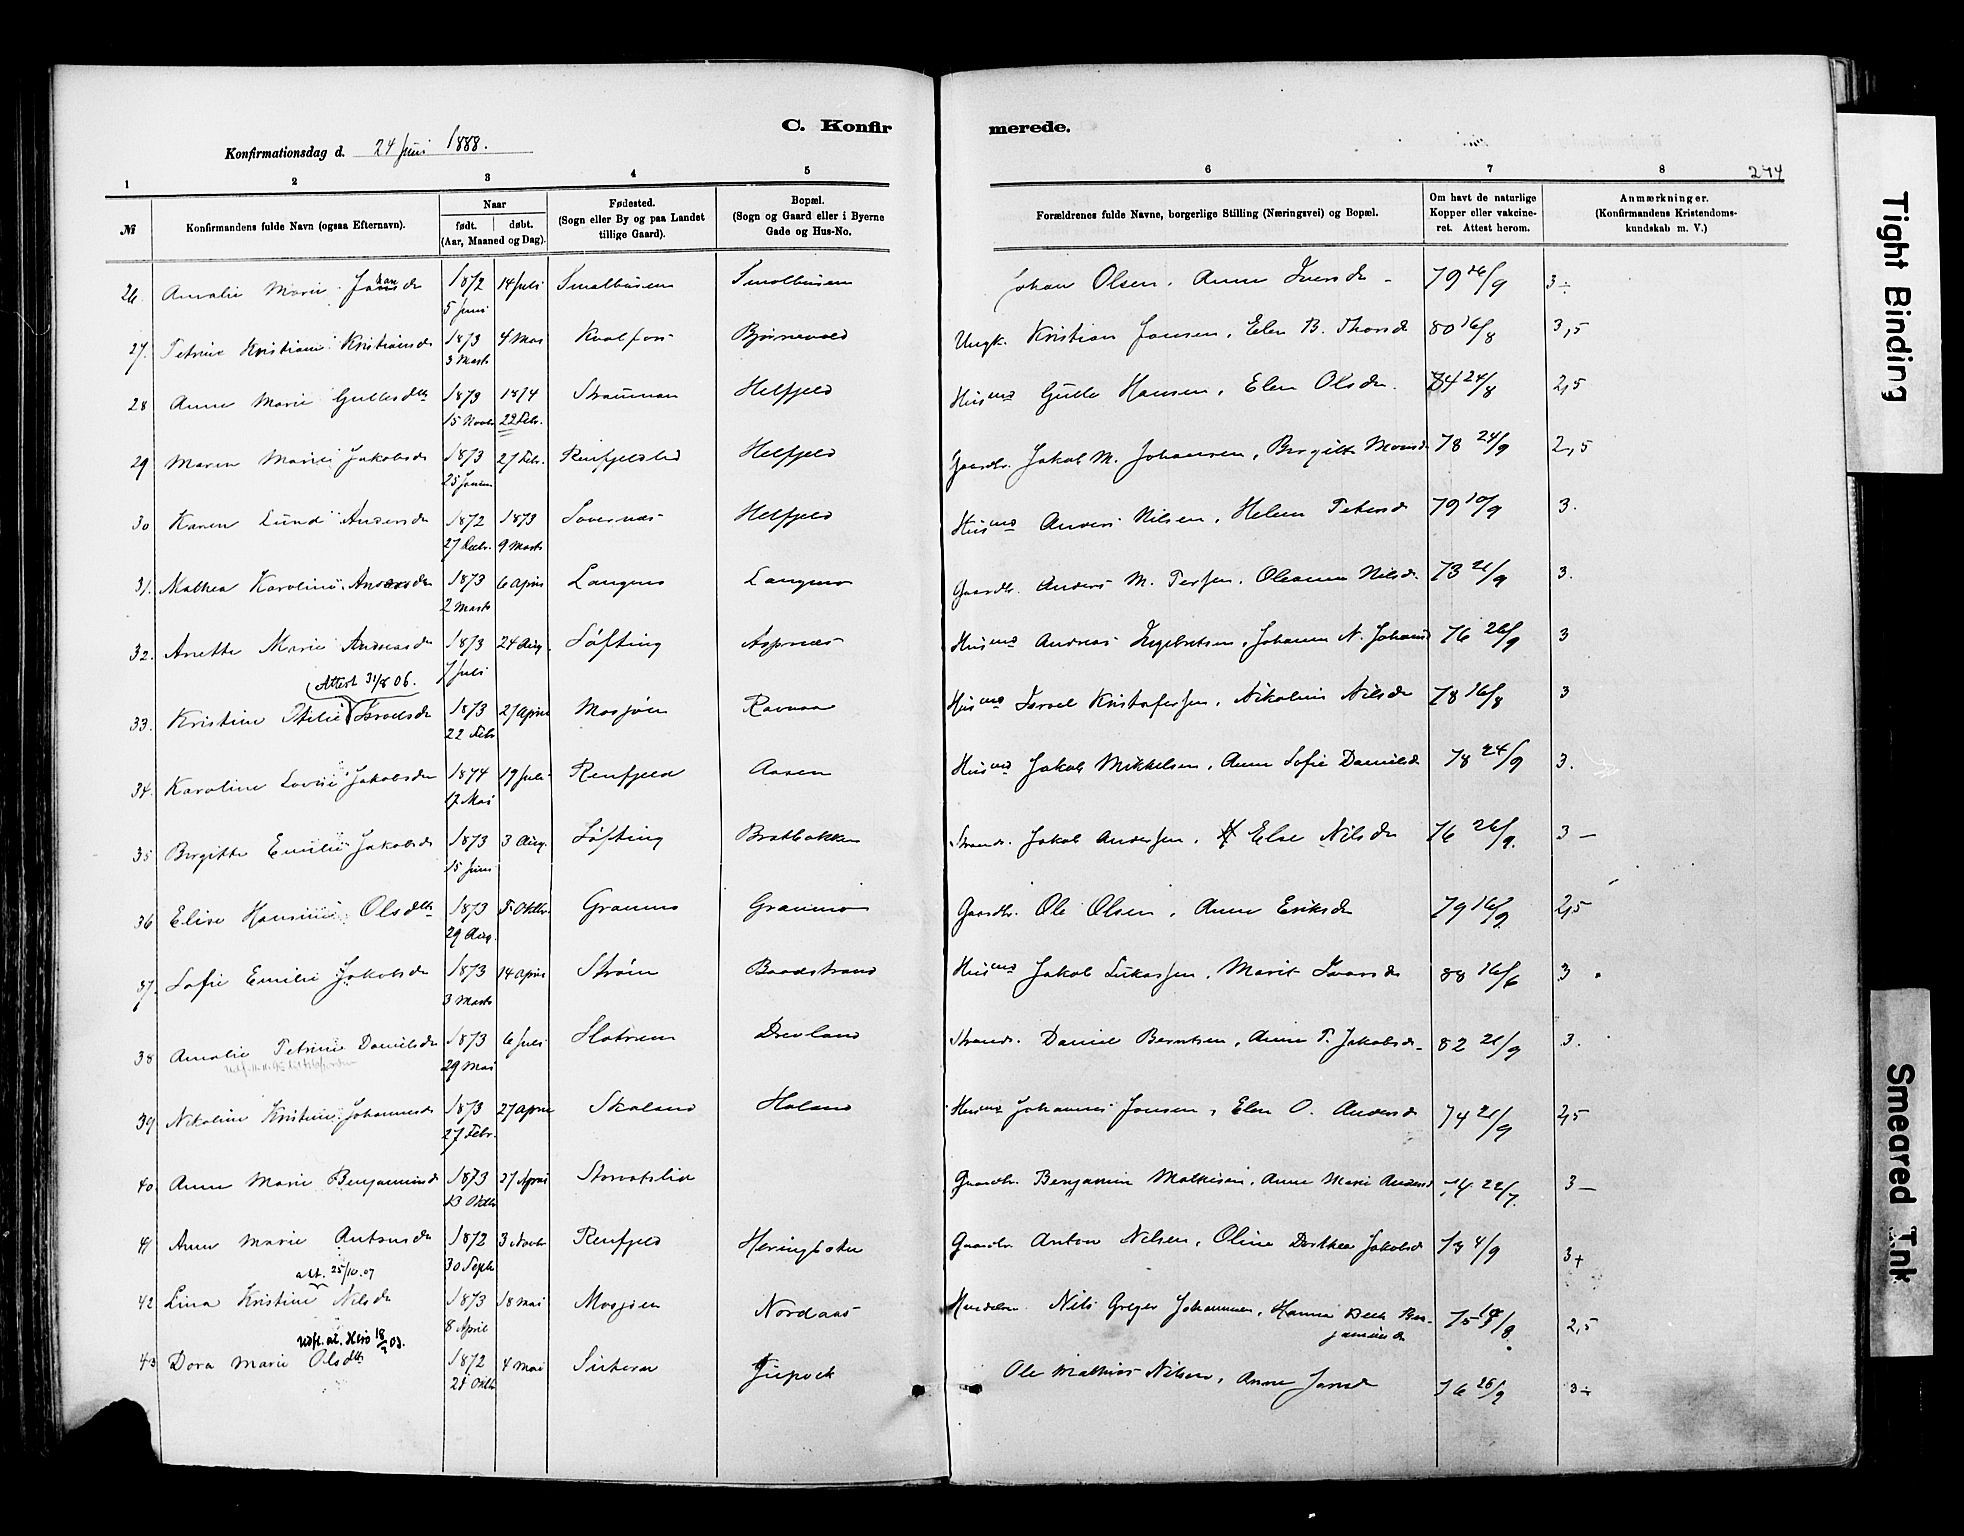 C. Konfirmerede.
Konfirmationsdag d. 24 Juni 1888.
244
1 2 3 4 5 6 7 8
№ Konfirmandens fulde Navn (ogsaa Efternavn). Naar født. døbt. (Aar, Maaned og Dag). Fødested. (Sogn eller By og paa Landet tillige Gaard). Bopæl. (Sogn og Gaard eller i Byerne Gade og Hus-No. Forældrenes fulde Navne, borgerlige Stilling (Næringsvei) og Bopæl. Om havt de naturlige Kopper eller vakcineret. Attest herom. Anmærkninger. (Konfirmandens Kristendomskundskab m. V.)
26. Amalie Marie 1872 5 Juni 14 Juli Smalhusen Smalhusen Johan Olsen, Anne Iversd. 79 26/9 3÷
27. Petrine Kristiane Kristiansd 1873 3 Marts 4 Mai Kvalfors Bjørnevold Ungk. Kristian Jonsen, Elen B. Thorsd 80 16/8 3,5
28 Anne Marie Gullesdtt 1873 15 Novbr 1874 22 Febr. Straumen Helfjeld Husmd Gulle Hansen, Elen Olsdr. 84 24/8 2,5
29 Maren Marie Jakobsd 1873 25 Januar 27 Febr. Renfjeldlid Helfjeld Gaardbr. Jakob M. Johansen, Birgitte Monsd 78 24/9 2,5
30 Karen Lund Andersd 1872 27 Decbr. 1873 9 Marts Sovernæs Helfjeld Husmd Anders Nilsen, Helene Petersd 79 10/9 3.
31. Mathea Karoline Andersdr 1873 2 Marts 6 April Langmo Langmo Gaardbr. Anders M. Persen, Oleanna Nilsd. 73 21/9 3.
32. Anette Marie Andreasdr 1873 7 Juli 24 Aug. Løfting Aspnæs Husmd Andreas Ingebretsen, Johanna N. Johansd 76 26/9 3
Attest 31/8 06.
33. Kristine Otilie Israelsdr 1873 22 Febr 27 April Mosjøen Ravnaa Husmd Israel Kristofersen, Nikoline Nilsdr 78 16/8 3
34. Karoline Lovise Jakobsdr 1874 17 Mai 19 Juli Renfjeld Aasen Husmd Jakob Mikkelsen, Anne Sofie Danielsd 78 24/9 3.
35 Birgitte Emilie Jakobsd 1873 15 Juni 3 Aug. Løfting Bratbakken Strands. Jakob Andersen, Else Nilsdr 76 26/9. 3 —
36 Elise Hansine Olsdtt 1873 29 Aug. 5 Oktbr. Granmo Granmo Gaardbr. Ole Olsen, Anne Eriksdr 79 16/9 2,5
37. Sofie Emilie Jakobsdr 1873 3 Marts 14 April Strøm Baadstrand Husmd Jakob Lukassen, Marit Ivarsdr 88 16/6 3
38 Amalie Petrine Danielsdr 1873 29 Mai 6 Juli Slotrem Drevland Strands. Daniel Berntsen, Anne P. Jakobsdr 82 21/9 3.
39 Nikoline Kristine Johannesd 1873 27 Febr. 27 April Skoland Holand Husmd Johannes Jonsen, Elen O. Andersd 74 21/9 2,5
40. Anne Marie Benjaminsd 1873 23 Oktbr 27 April Storvatslid Gaardbr. Benjamin Mathisen, Anne Marie Andersd 74 22/7. 3 —
41 Anne Marie Antonsdr 1872 30 Septbr 3 Novbr Renfjeld Heringboten Gaardbr. Anton Nilsen, Oline Dorthea Jakobsd 73 4/9 3+
att. 25/10.07
42 Lina Kristine Nilsdr 1873 8 April 18 Mai Mosjøen Nordaas Nils Greger Johannesen, Hanna Benjaminsdr 75 2,5
Udfl. at. Herø 03.
43 Dora Marie Olsdtt 1872 28 Oktbr 4 Mai Ole Mathias Nilsen, Anne Jonsdr 76 26/9 3÷
Tight Binding
Smeared Ink